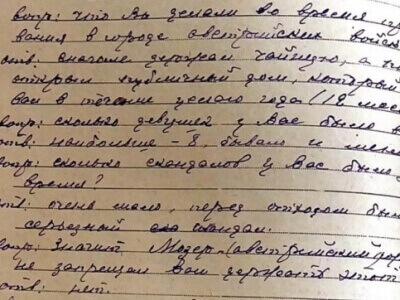 вопр: что Вы делали во время пре
вания в городе австрийских войск
отв: сначала держал чайную, а по
открыл публичный дом, который
вал в течение целого года (12 мес
вопр: сколько девушек у Вас было
отв: наибольше – 8, бывало и мень
вопр: сколько скандалов у Вас было
время?
отв: очень мало, перед отходом был
серьезный скандал.
вопр: Значит Мозер (австрийский
не запрещал Вам держать этот
отв: нет.